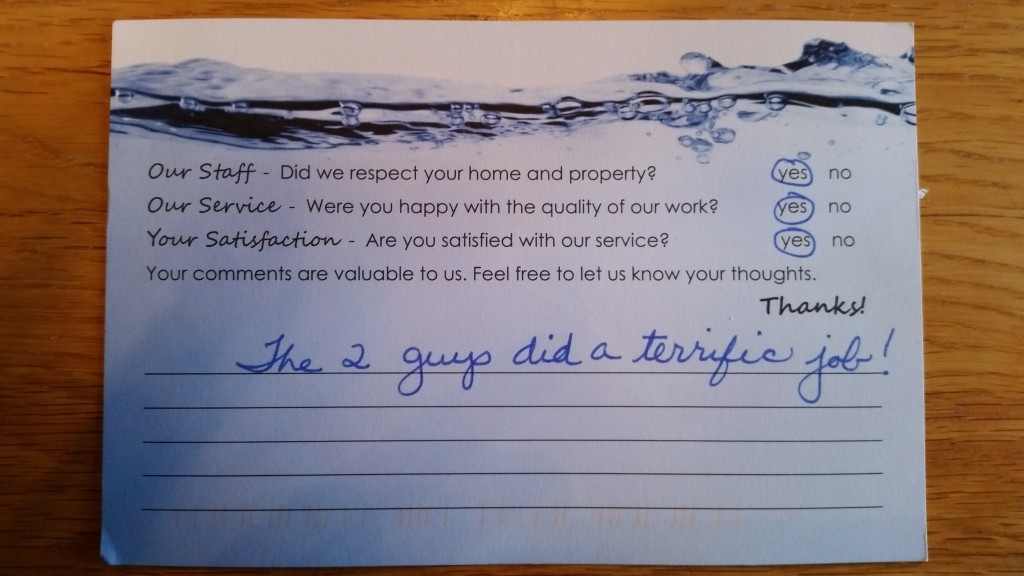 Our Staff - Did we respect your home and property? yes no
Our Service - Were you happy with the quality of our work? yes no
Your Satisfaction - Are you satisfied with our service? yes no
Your comments are valuable to us. Feel free to let us know your thoughts.
Thanks!
The 2 guys did a terrific job!